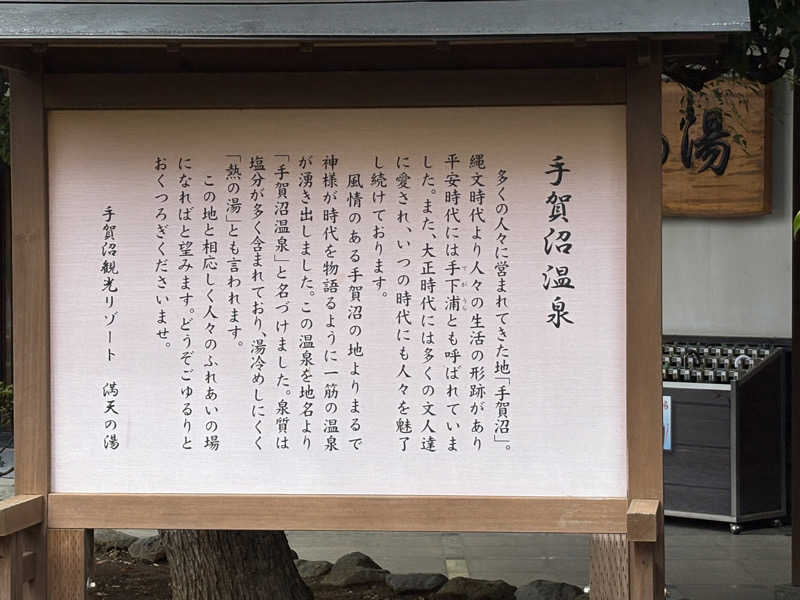 手賀沼温泉
多くの人々に営まれてきた地「手賀沼」。
縄文時代より人々の生活の形跡があり
平安時代には手下浦とも呼ばれていま
した。また、大正時代には多くの文人達
に愛され、いつの時代にも人々を魅了
し続けております。
風情のある手賀沼の地よりまるで
神様が時代を物語るように一筋の温泉
が湧き出しました。この温泉を地名より
「手賀沼温泉」と名づけました。泉質は
塩分が多く含まれており、湯冷めしにくく
「熱の湯」とも言われます。
この地と相応しく人々のふれあいの場
になればと望みます。どうぞごゆるりと
おくつろぎくださいませ。
手賀沼観光リゾート 満天の湯
湯